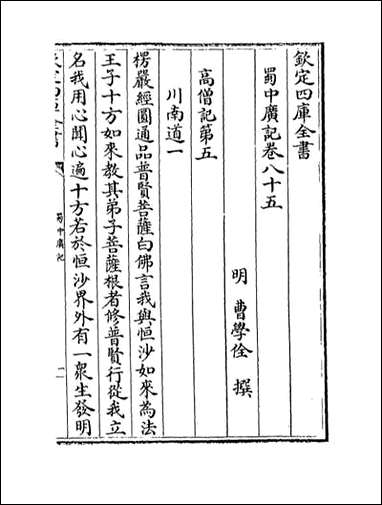 欽定四庫全書
蜀中廣記卷八十五
明 曹學佺 撰
高僧記第五
川南道一
楞嚴經圓通品普賢菩薩白佛言我與恒沙如來為法
王子十方如來教其弟子菩薩根者修普賢行從我立
名我用心聞心遍十方若於恒沙界外有一衆生發明
蜀中廣記
一